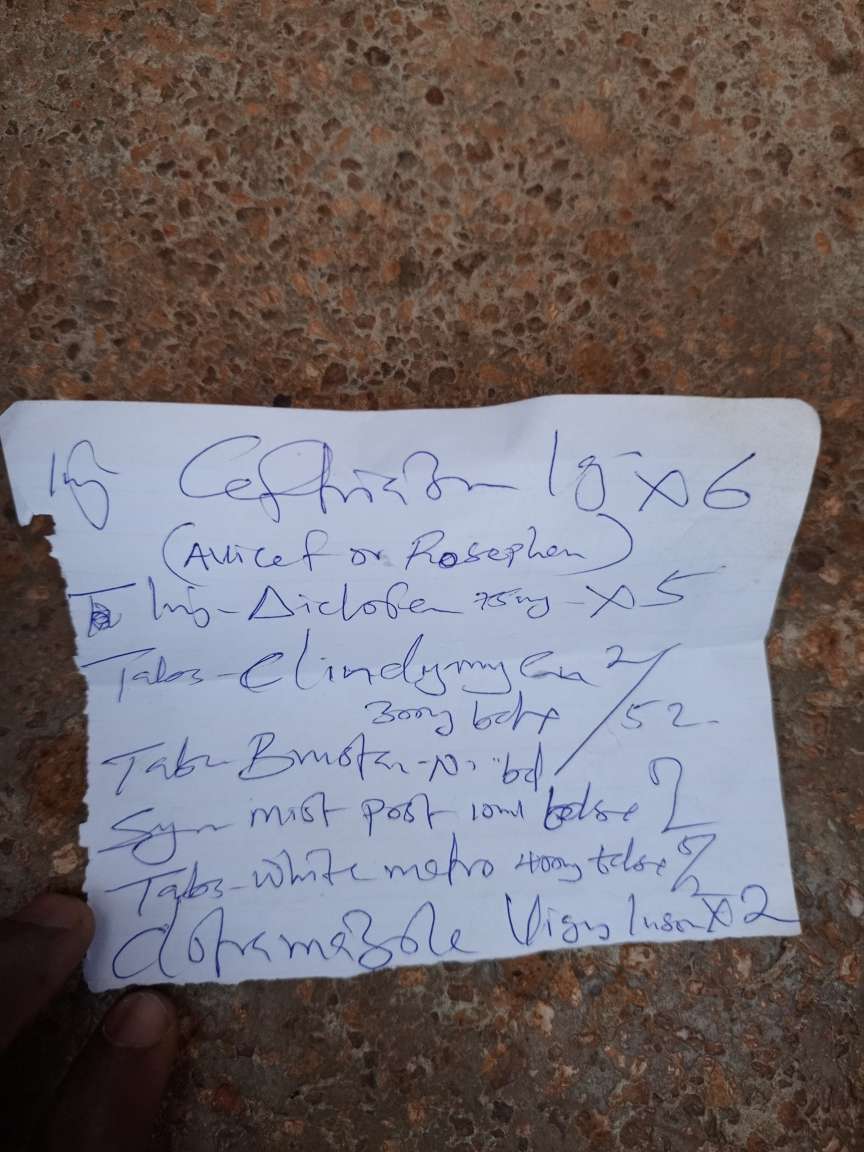 Inj Ceftriazon 1g x 6
(Avicef or Rosephen)
Inj - Diclofen 75mg - x 5
Tabs - Clindymycin 2/52
300mg bdx
Tabs Brustan-N bd
Syr mist post 10ml bdx
Tabs - white metro 400mg tdsx 5/7
Clotrimazole x 2